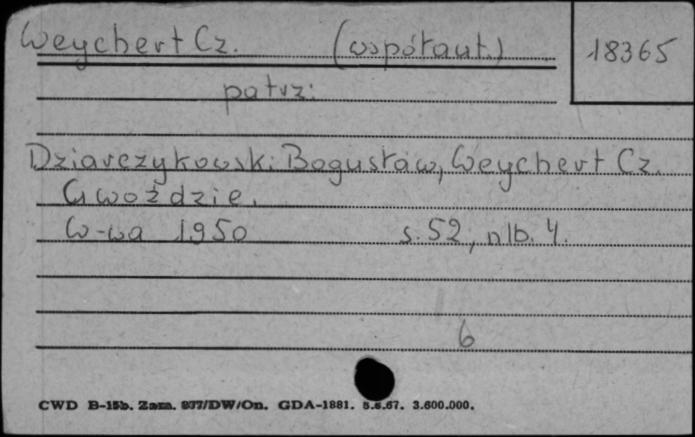 Weychert Cz. (współaut.)
18365
patrz:
Dziarczykowski Bogusław, Weychert Cz.
Gwoździe.
W-wa 1950 s. 52, nlb. 4.
6
CWD B-15b. Zam. 977/DW/On. GDA-1881. 5.6.67. 3.600.000.